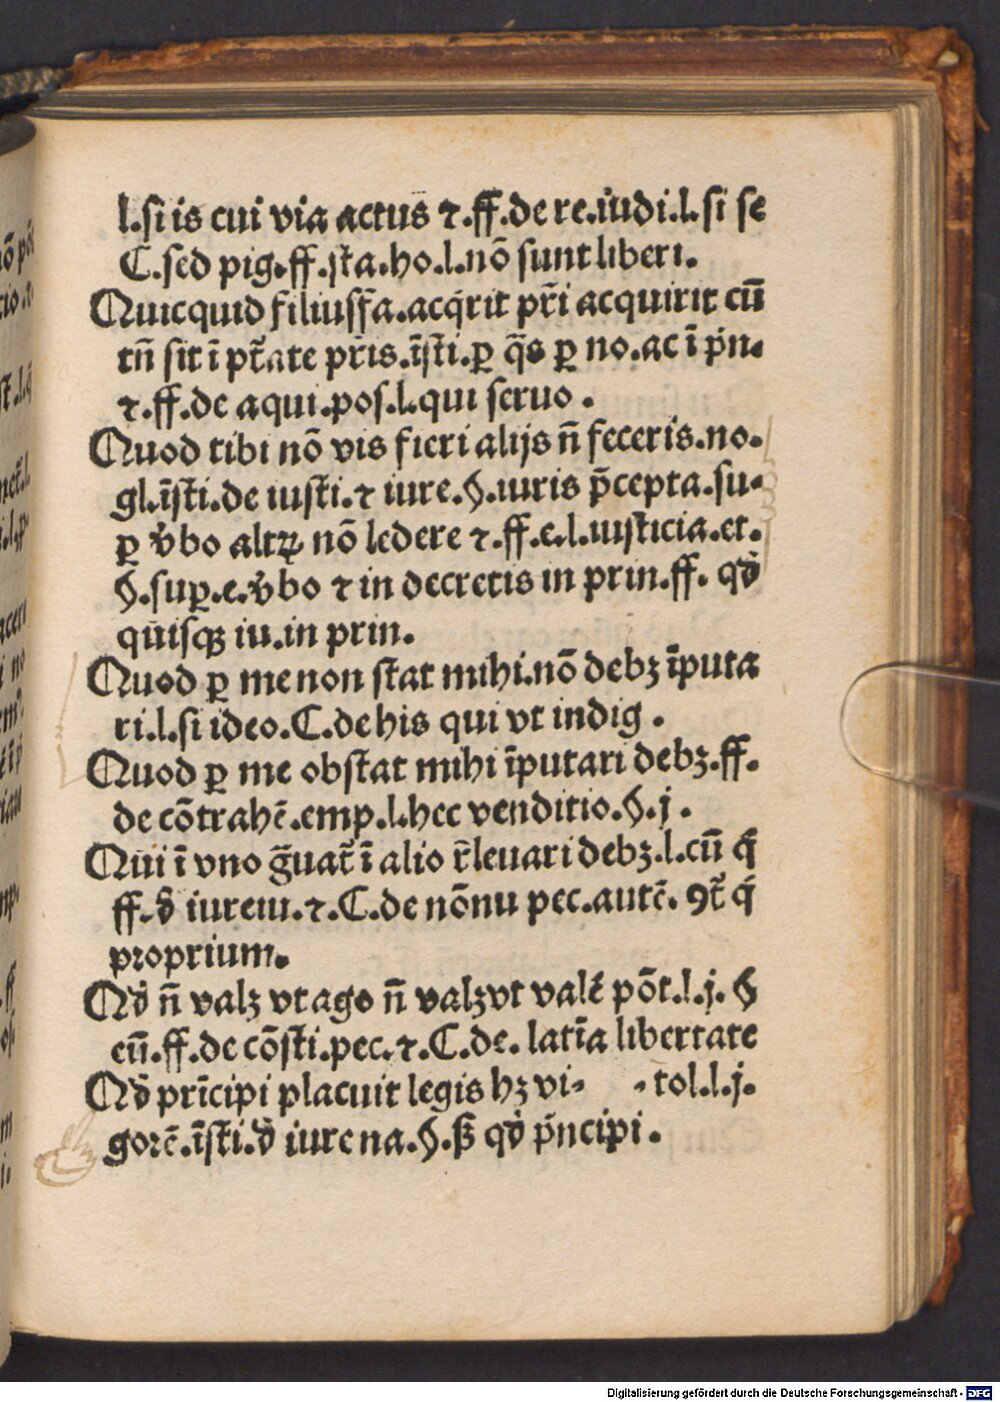 l.si is cui via actus ⁊.ff.de re.iudi.l.si se
C.sed pig.ff.sta.ho.l.nō sunt liberi.
Quicquid filiusfa.acqrit pri acquirit cū
tn̄ sit ī ptate pris.īsti.ꝑ q̄s ꝑ no.ac ī pn.
⁊.ff.de aqui.pos.l.qui seruo.
Quod tibi nō vis fieri alijs n̄ feceris.no.
gl.īsti.de iusti.⁊ iure.§.iuris p̄cepta.su-
ꝑ v̓bo altꝝ nō ledere ⁊.ff.e.l.iusticia.et.
§.suꝑ.e.v̓bo ⁊ in decretis in prin.ff. qd̓
quisqꝫ iu.in prin.
Quod ꝑ me non stat mihi.nō debꝫ īputa
ri.l.si ideo.C.de his qui vt indig.
Quod ꝑ me obstat mihi īputari debꝫ.ff.
de cōtrahē.emp.l.hec venditio.§.j.
Qui ī vno ḡuat̄ ī alio r̄leuari debꝫ.l.cū q̄
ff.d̓ iureiu.⁊.C.de nōnu pec.autē. ꝯt̄ q̓
proprium.
Qd̓ n̄ valꝫ vt ago n̄ valꝫ vt valē pōt.l.j.§
eū.ff.de cōsti.pec.⁊.C.de. latīa libertate
Qd̓ prīcipi placuit legis hꝫ vi- .tol.l.j.
gorē.īsti.d̓ iure na.§.ꝸ qd̓ pn̓cipi.
Digitalisierung gefördert durch die Deutsche Forschungsgemeinschaft - DFG